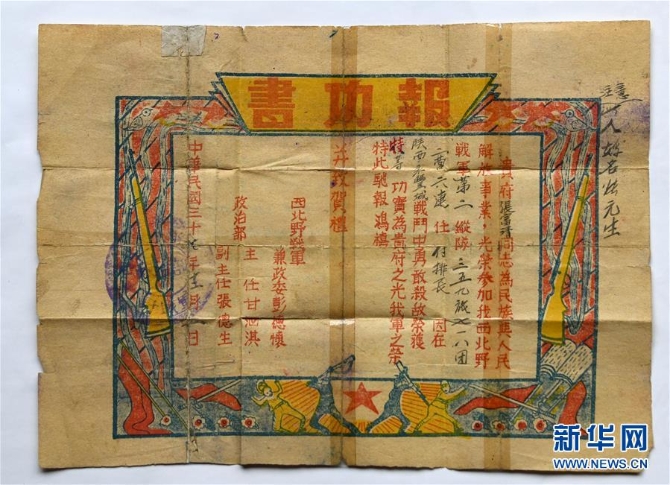 報功書
貴府張富清同志為民族與人民
解放事業,光榮參加我西北野
戰軍第二縱隊三五九旅七一八團
二營六連 任付排長 因在
陝西永豐城戰鬥中勇敢殺敵榮獲
特等功實為貴府之光我軍之榮
特此馳報鴻禧
并致賀禮
西北野戰軍
兼政委彭德懷
政治部
主任甘泗淇
副主任張德生
中華民國三十七年十二月 日
注意
人姓名
元生
新华网
WWW.NEWS.CN